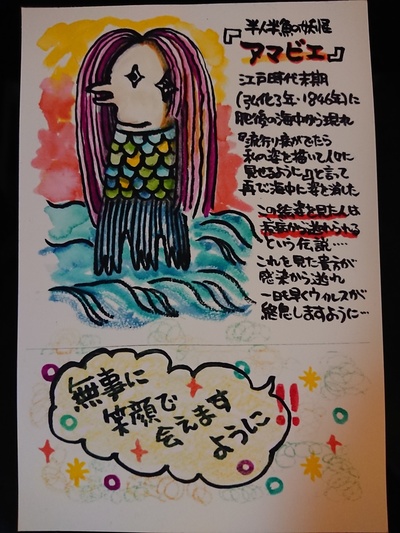 半人半魚の妖怪
『アマビエ』
江戸時代末期
(弘化3年・1846年)に
肥後の海中から現れ
『流行り病がでたら
私の姿を描いて人々に
見せるように』と言って
再び海中に姿を消した
この絵姿を見た人は
疫病から逃れられる
という伝説…
これを見た貴方が
感染から逃れ
一日も早くウィルスが
終息しますように…
無事に
笑顔で
会えます
ように!!